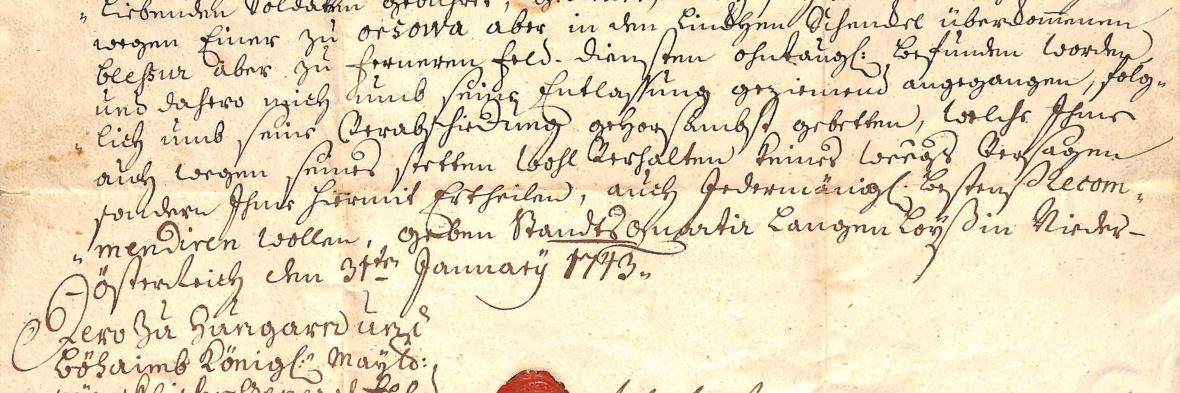 „ Liebenden Soldaten
wegen Einer zu orsowa aber in den Lincken Schenckel überkommenen
blessur aber zu ferneren feld-diensten ohntaugl: befunden worden
und dahero mich umb seine Entlassung geziemend angegangen, folg-
„ lich umb seine Verabschiedung gehorsambst gebetten, welche Ihme
auch wegen seines stetten wohl Verhalten keines weegs Versagen
sondern Ihme hiermit Ertheilen, auch Jedermänigl: bestens Recom-
„ mendiren wollen, geben Standts Quartir Langen Loyß in Nieder-
Österreich den 31ten January 1743.
Dero Zu Hungarn und
böhaimb Königl: Mayts: